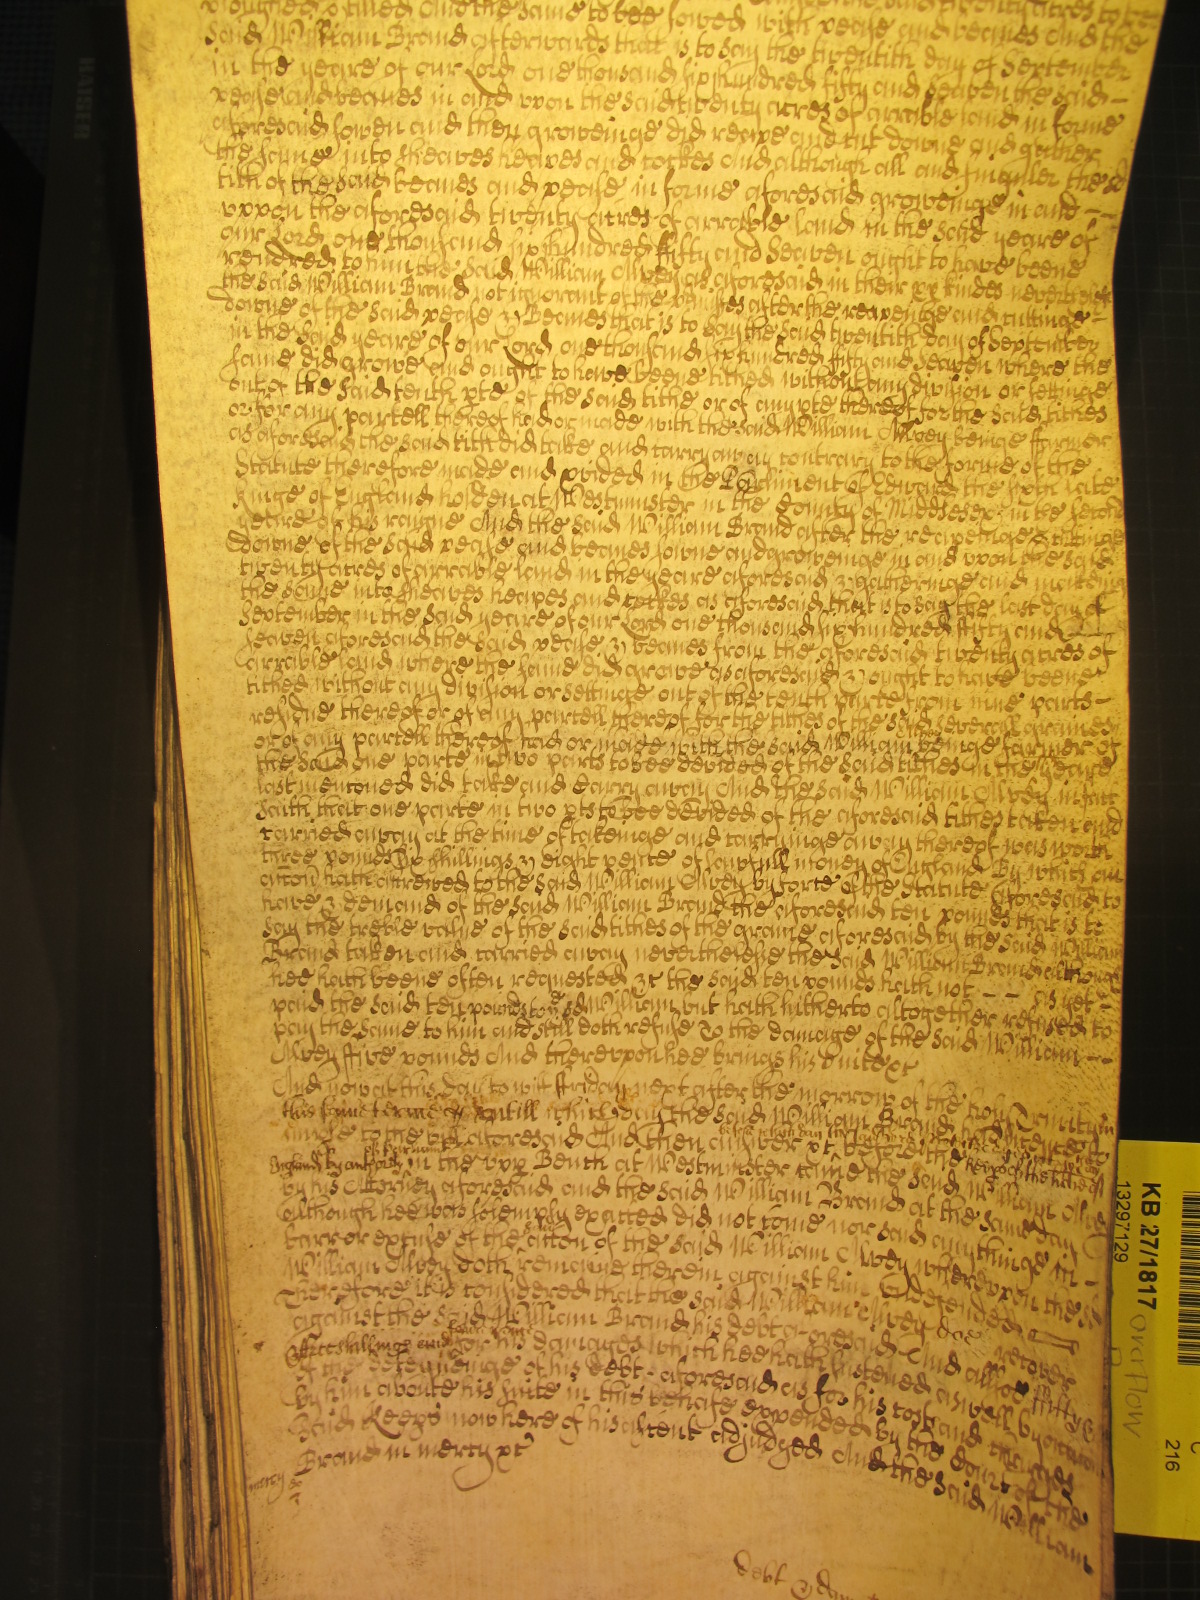 ploughed & tilled And the same to bee sowed with pease and beanes And the
said William Brand afterwards that is to say the twentith day of September
in the yeare of our Lord one thousand six hundred fifty and seaven the said
pease and beanes in and upon the said twenty acres of arrable land in forme
aforesaid sowen and then groweinge did reape and cutt downe and gather
the same into sheaves heapes and cockes And although all and singuler the
tith of the said beanes and pease in forme aforesaid groweinge in and
uppon the aforesaid twenty acres of arrable land in the said yeare of
our Lord one thousand six hundred fifty and seaven ought to have beene
rendred to him the said William Alvey as aforesaid in their xx kindes neverthelesse
the said William Brand not ignorant of the premisses after the reapeinge and cuttinge
downe of the said pease & Beanes that is to say the said twentith day of September
in the said yeare of our Lord one thousand six hundred fifty and seaven where the
same did growe and ought to have beene tithed without any division or settinge
out of the said tenth pte of the said tithe or of any pte thereof for the said tithes
or for any parcell thereof had or made with the said William Alvey beinge ffarmer
as aforesaid the said tith did take and carry away contrary to the forme of the
Statute therefore made and pvided in the Parliament of Edward the sixth late
Kinge of England holden at Westminster in the County of Middlesex in the second
yeare of his raigne And the said William Brand after the reapeinge & cuttinge
downe of the said pease and beanes sowne and groweinge in and upon the said
twenty acres of arrable land in the yeare aforesaid & gatheringe and makeing
the same into sheaves heapes and cockes as aforesaid that is to say the last day of
September in the said yeare of our Lord one thousand six hundred fifty and
seaven aforesaid the said pease & beanes from the aforesaid twenty acres of
arrable land where the same did growe as aforesaid & ought to have beene
tithed without any division or settinge out of the tenth parte from nine parts
residue thereof or of any parcell thereof for the tithes of the said severall graines
or of any parcell thereof had or made with the said William beinge farmer of
the said one parte in two parts to bee devided of the said tithes in the yeare
last mentioned did take and carry away And the said William Alvey in fact
saith that one parte in two pts to bee devided of the aforesaid tithes taken and
carried away at the time of takeinge and carryinge away thereof was worth
three pounds six shillings & eight pence of lawfull money of England By which an
accon hath accrewed to the said William Alvey by force of the Statute aforesaid to
have & demand of the said William Brand the aforesaid ten pounds that is to
say the treble value of the said tithes of the graine aforesaid by the said William
Brand taken and carried away neverthelesse the said William Brand although
hee hath beene often requested &c the said ten pounds hath not as yet
paid the said ten pounds to the sd William but hath hitherto altogether refused to
pay the same to him and still doth refuse To the damage of the said William
Alvey ffive pounds And thereupon hee brings his suite &c
And now at this day to witt ffriday next after the morrow of the holy Trinity in
this same terme untill which day the said William Brand had licence to
imple to the bill aforesaid And then answer &c before the
in the upp Bench at Westminster came the said William Alvey
by his Attorney aforesaid and the said William Brand at the same day
Although hee was solempnly exacted did not come nor said any thinge in
barr or exclusion of the accon of the said William Alvey whereupon the sd
William Alvey doth remaine therein against him undefended
Therefore it is considered that the said William Alvey doe recover
against the said William Brand his debt aforesaid And allsoe ffifty &
three shillings and for his damages which hee hath susteined as well by occasion
of the deteyninge of his debt aforesaid as for his costs and charges
by him aboute his suite in this behalfe expended by the Court of the
said Keeps now here of his assent adjudged And the said William
Brand in mercy &c
mercy
debt & dam
KB 27/1817
13297129
overflow
216
KAISER